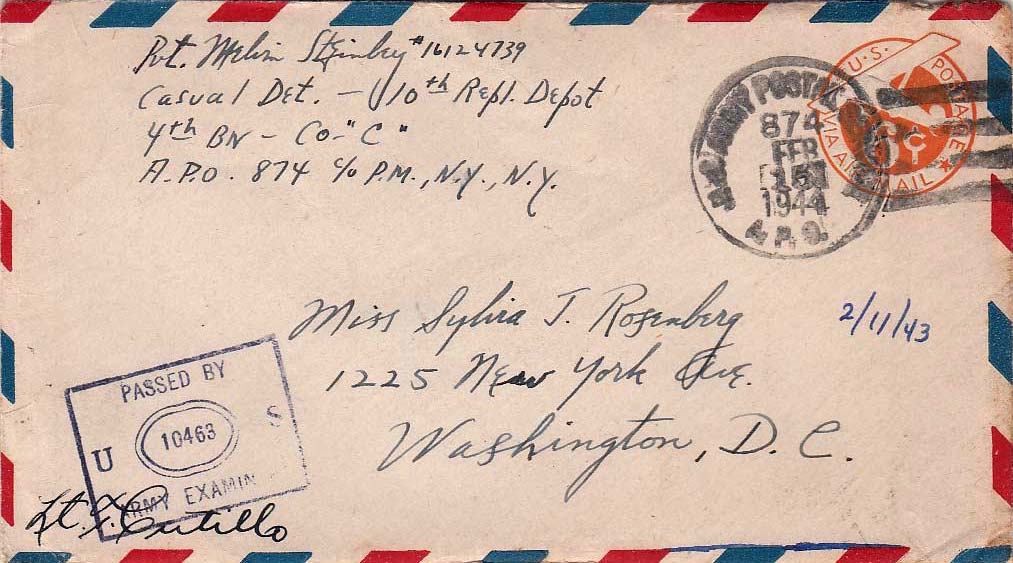 Pvt. Melvin Steinbey #16124739
Casual Det. – 10th Repl. Depot
4th BN – Co. "C"
A.P.O. 874 c/o P.M., N.Y., N.Y.
U.S. ARMY POSTAL
874
FEB
15
1944
A.P.O.
U.S. POSTAGE
6¢
VIA AIR MAIL
Miss Sylvia J. Rosenberg
1225 New York Ave.
Washington, D.C.
2/11/43
PASSED BY
U 10463 S
ARMY EXAMIN
Lt. F. Cutillo